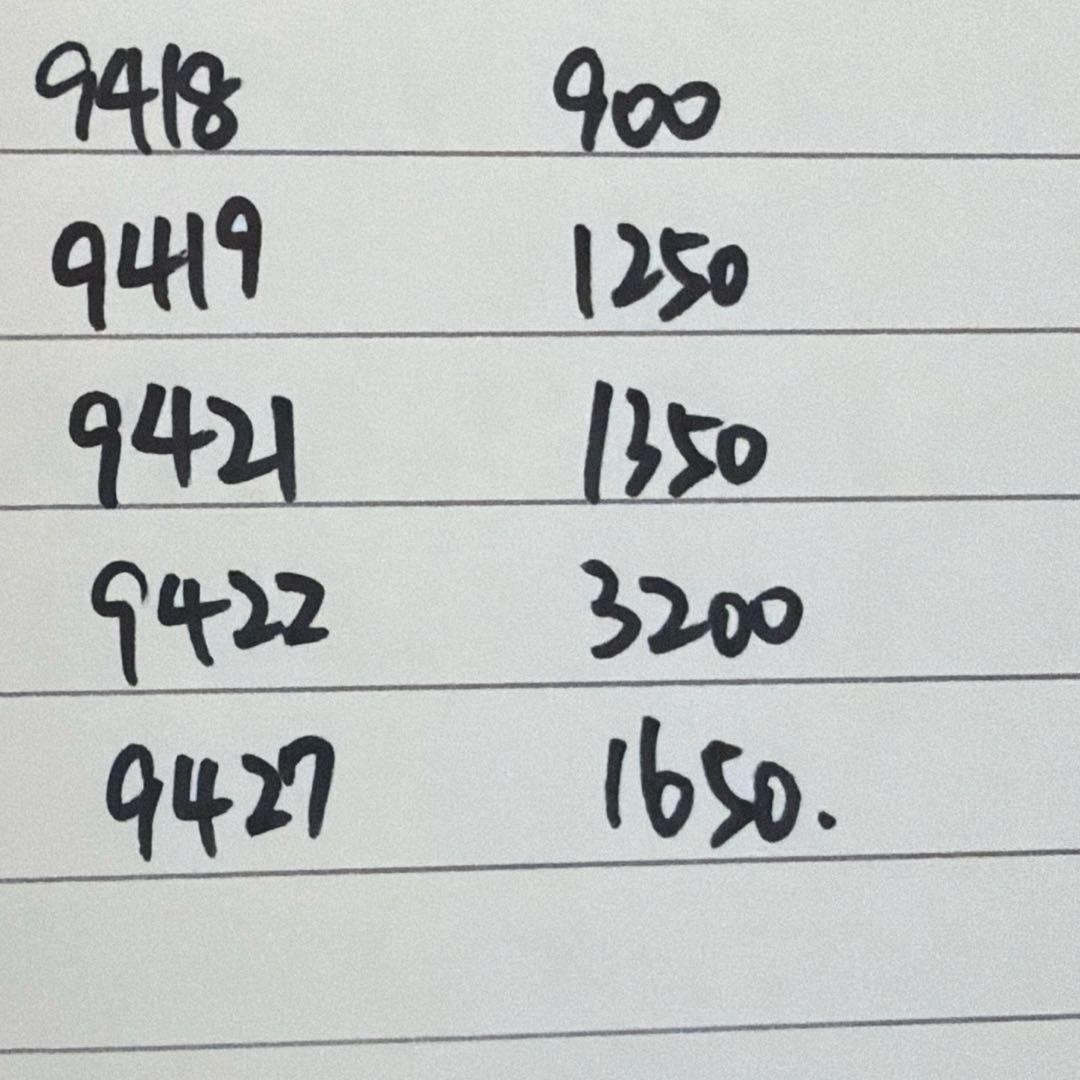 9418 900
9419 1250
9421 1350
9422 3200
9427 1650.